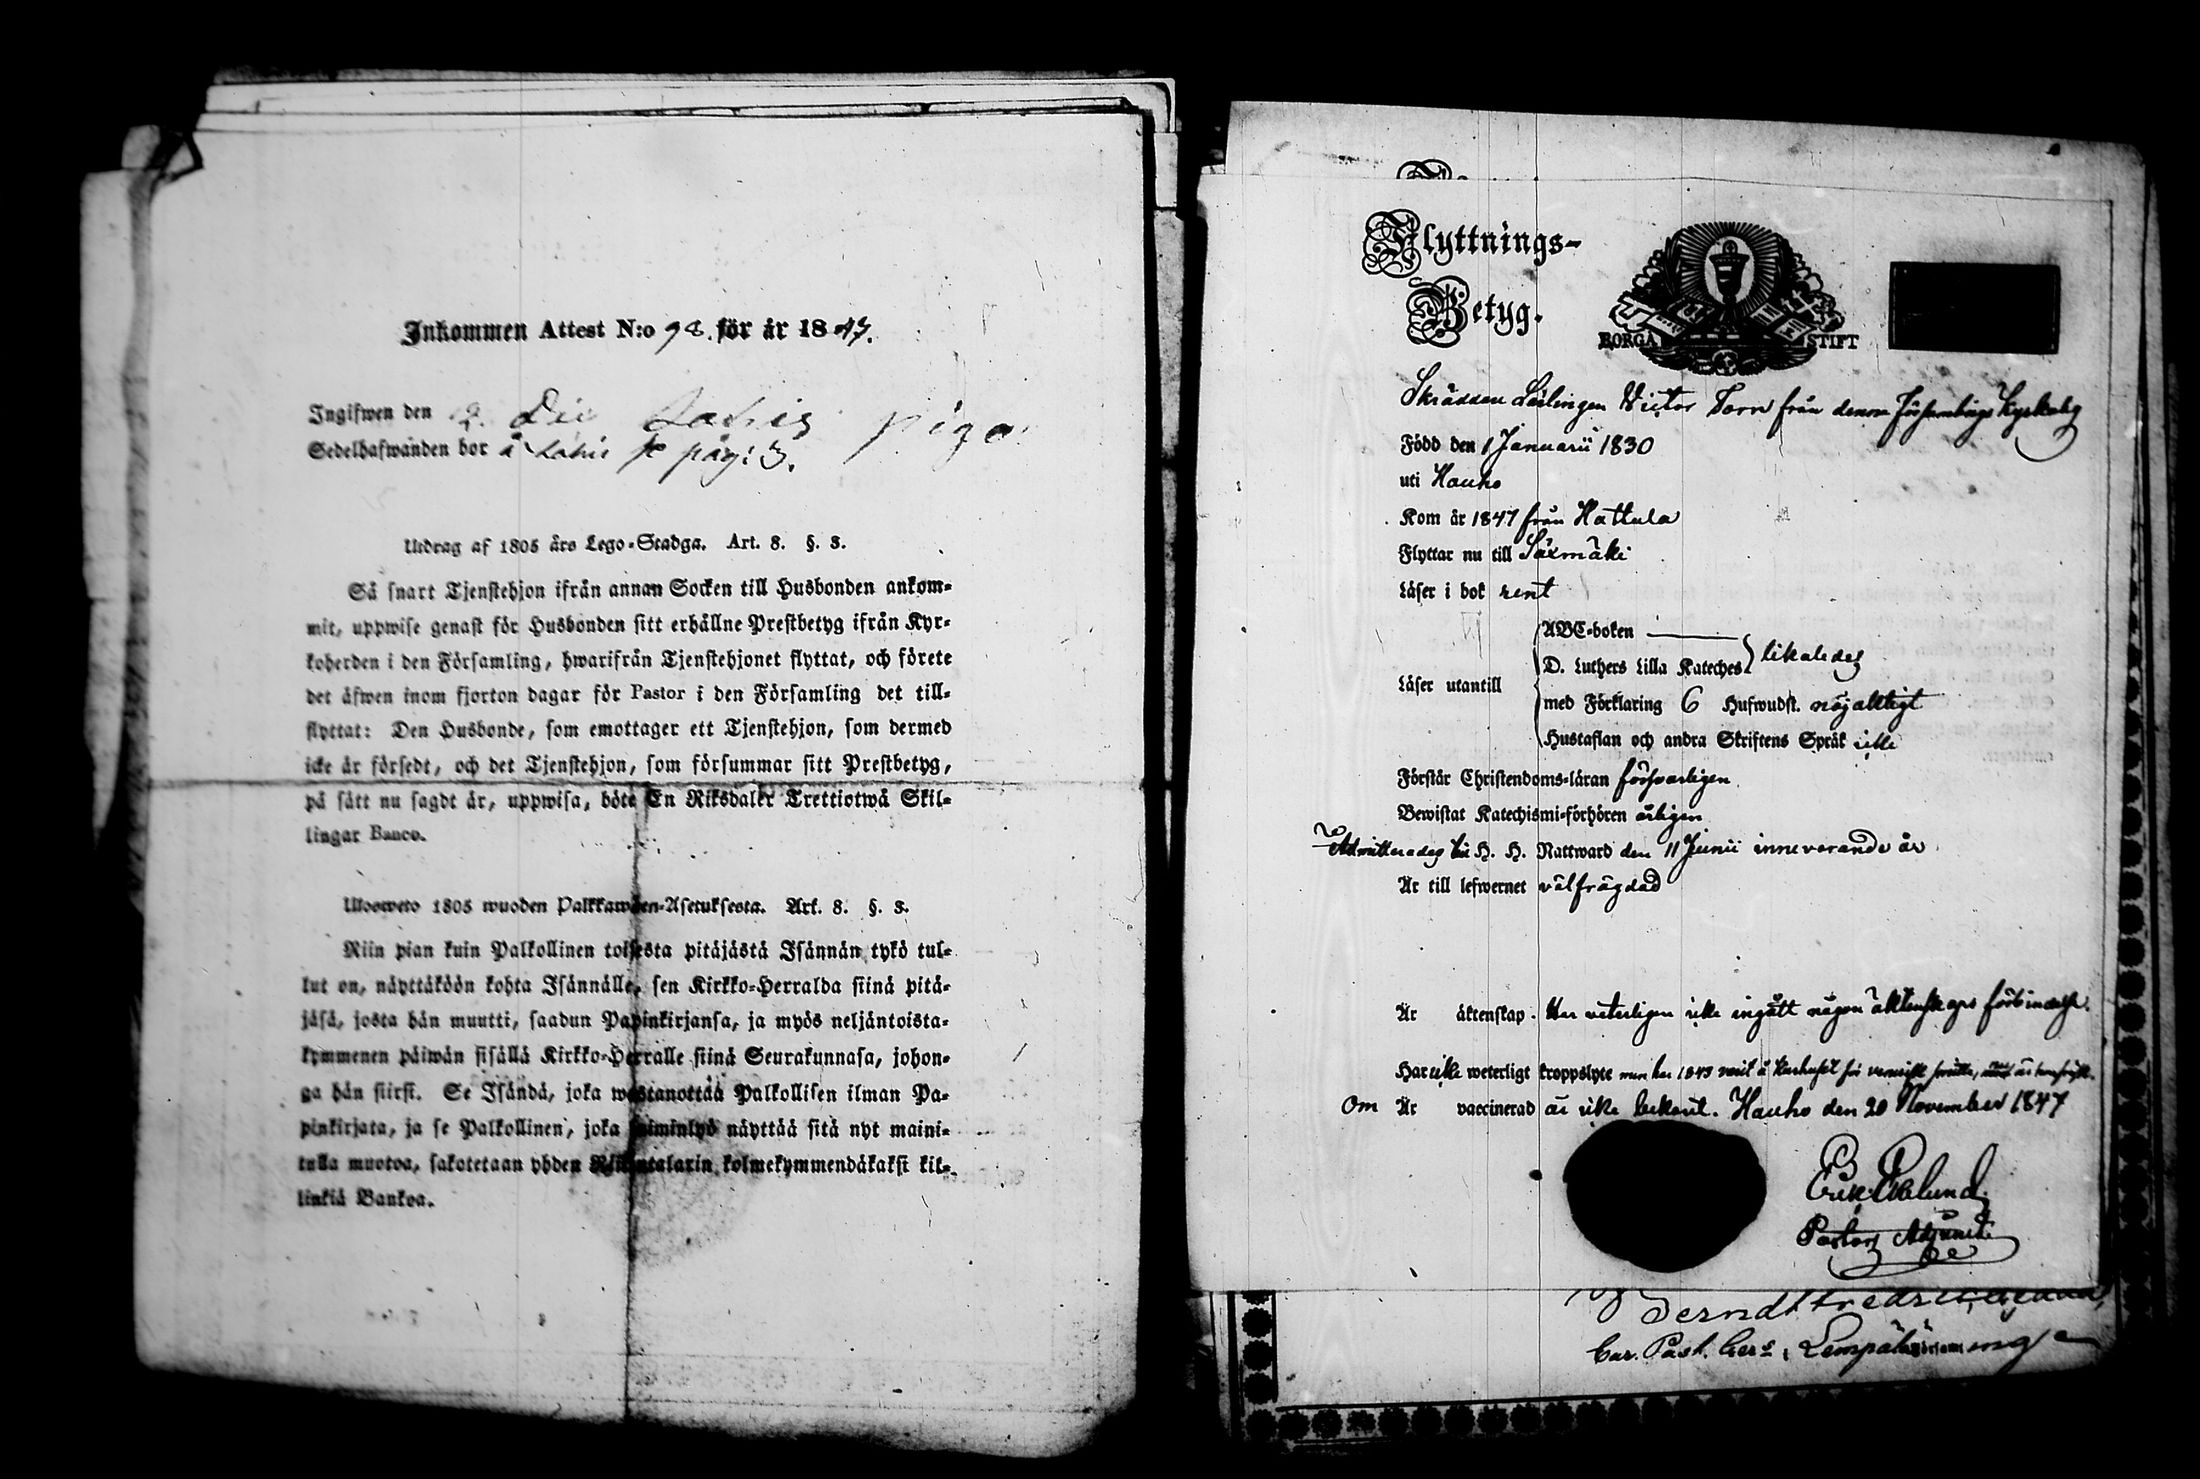 Inkommen Attest N:o 98. för år 1847.
Ingifwen den
Sedelhafwanden bor å pag: 3.
Utdrag af 1805 års Lego-Stadga. Art. 8. §. 3.
Så snart Tjenstehjon ifrån annan Socken till Husbonden ankom-
mit, uppwise genast för Husbonden sitt erhållne Prestbetyg ifrån Kyr-
koherden i den Församling, hwarifrån Tjenstehjonet flyttat, och förete
det äfwen inom fjorton dagar för Pastor i den Församling det till-
flyttat: Den Husbonde, som emottager ett Tjenstehjon, som dermed
icke är försedt, och det Tjenstehjon, som försummar sitt Prestbetyg,
på sätt nu sagdt är, uppwisa, böte En Riksdaler Trettiotwå Skil-
lingar Banco.
Ulosweto 1805 wuoden Palkkawäen-Asetuksesta. Art. 8. §. 3.
Niin pian kuin Palkollinen toisesta pitäjästä Isännän tykö tul-
lut on, näyttäköön kohta Isännälle, sen Kirkko-Herralda siinä pitä-
jäsä, josta hän muutti, saadun Papinkirjansa, ja myös neljäntoista-
kymmenen päiwän sisällä Kirkko-Herralle siinä Seurakunnasa, johon-
ga hän siirsi. Se Isändä, joka wastanottaa Palkollisen ilman Pa-
pinkirjata, ja se Palkollinen, joka laiminlyö näyttää sitä nyt maini-
tulla muotoa, sakotetaan yhden Riikintalarin kolmekymmendäkaksi kil-
linkiä Bankoa.
Flyttnings-
Betyg.
BORGÅ STIFT
Skräddare Lärlingen Victor Torn från denna Församlings Kyrkoby
Född den 1 Januarii 1830
uti Hauho
Kom år 1847 från Hattula
Flyttar nu till Säxmäki
Läser i bok rent
Läser utantill
ABC-boken
D. Luthers Lilla Kateches likaledes
med Förklaring 6 Hufwudst. nöjaktigt
Hustaflan och andra Skriftens Språk icke
Förstår Christendoms-läran försvarligen
Bewistat Katechismi-förhören årligen
Admitterades till H. H. Nattward den 11 Junii innevarande år
Är till lefwernet välfrägdad
Är äktenskap. Har veterligen icke ingått någon äktenskaps förbindelse.
Har icke weterligt kroppslyte men har 1845 varit å Kurhuset för venerisk smitta, är
Om Är vaccinerad är icke bekant. Hauho den 20 November 1847
Erik Eklund
Pastors Adjunct
Berndt Fredric
Car. Past. i Lempälä